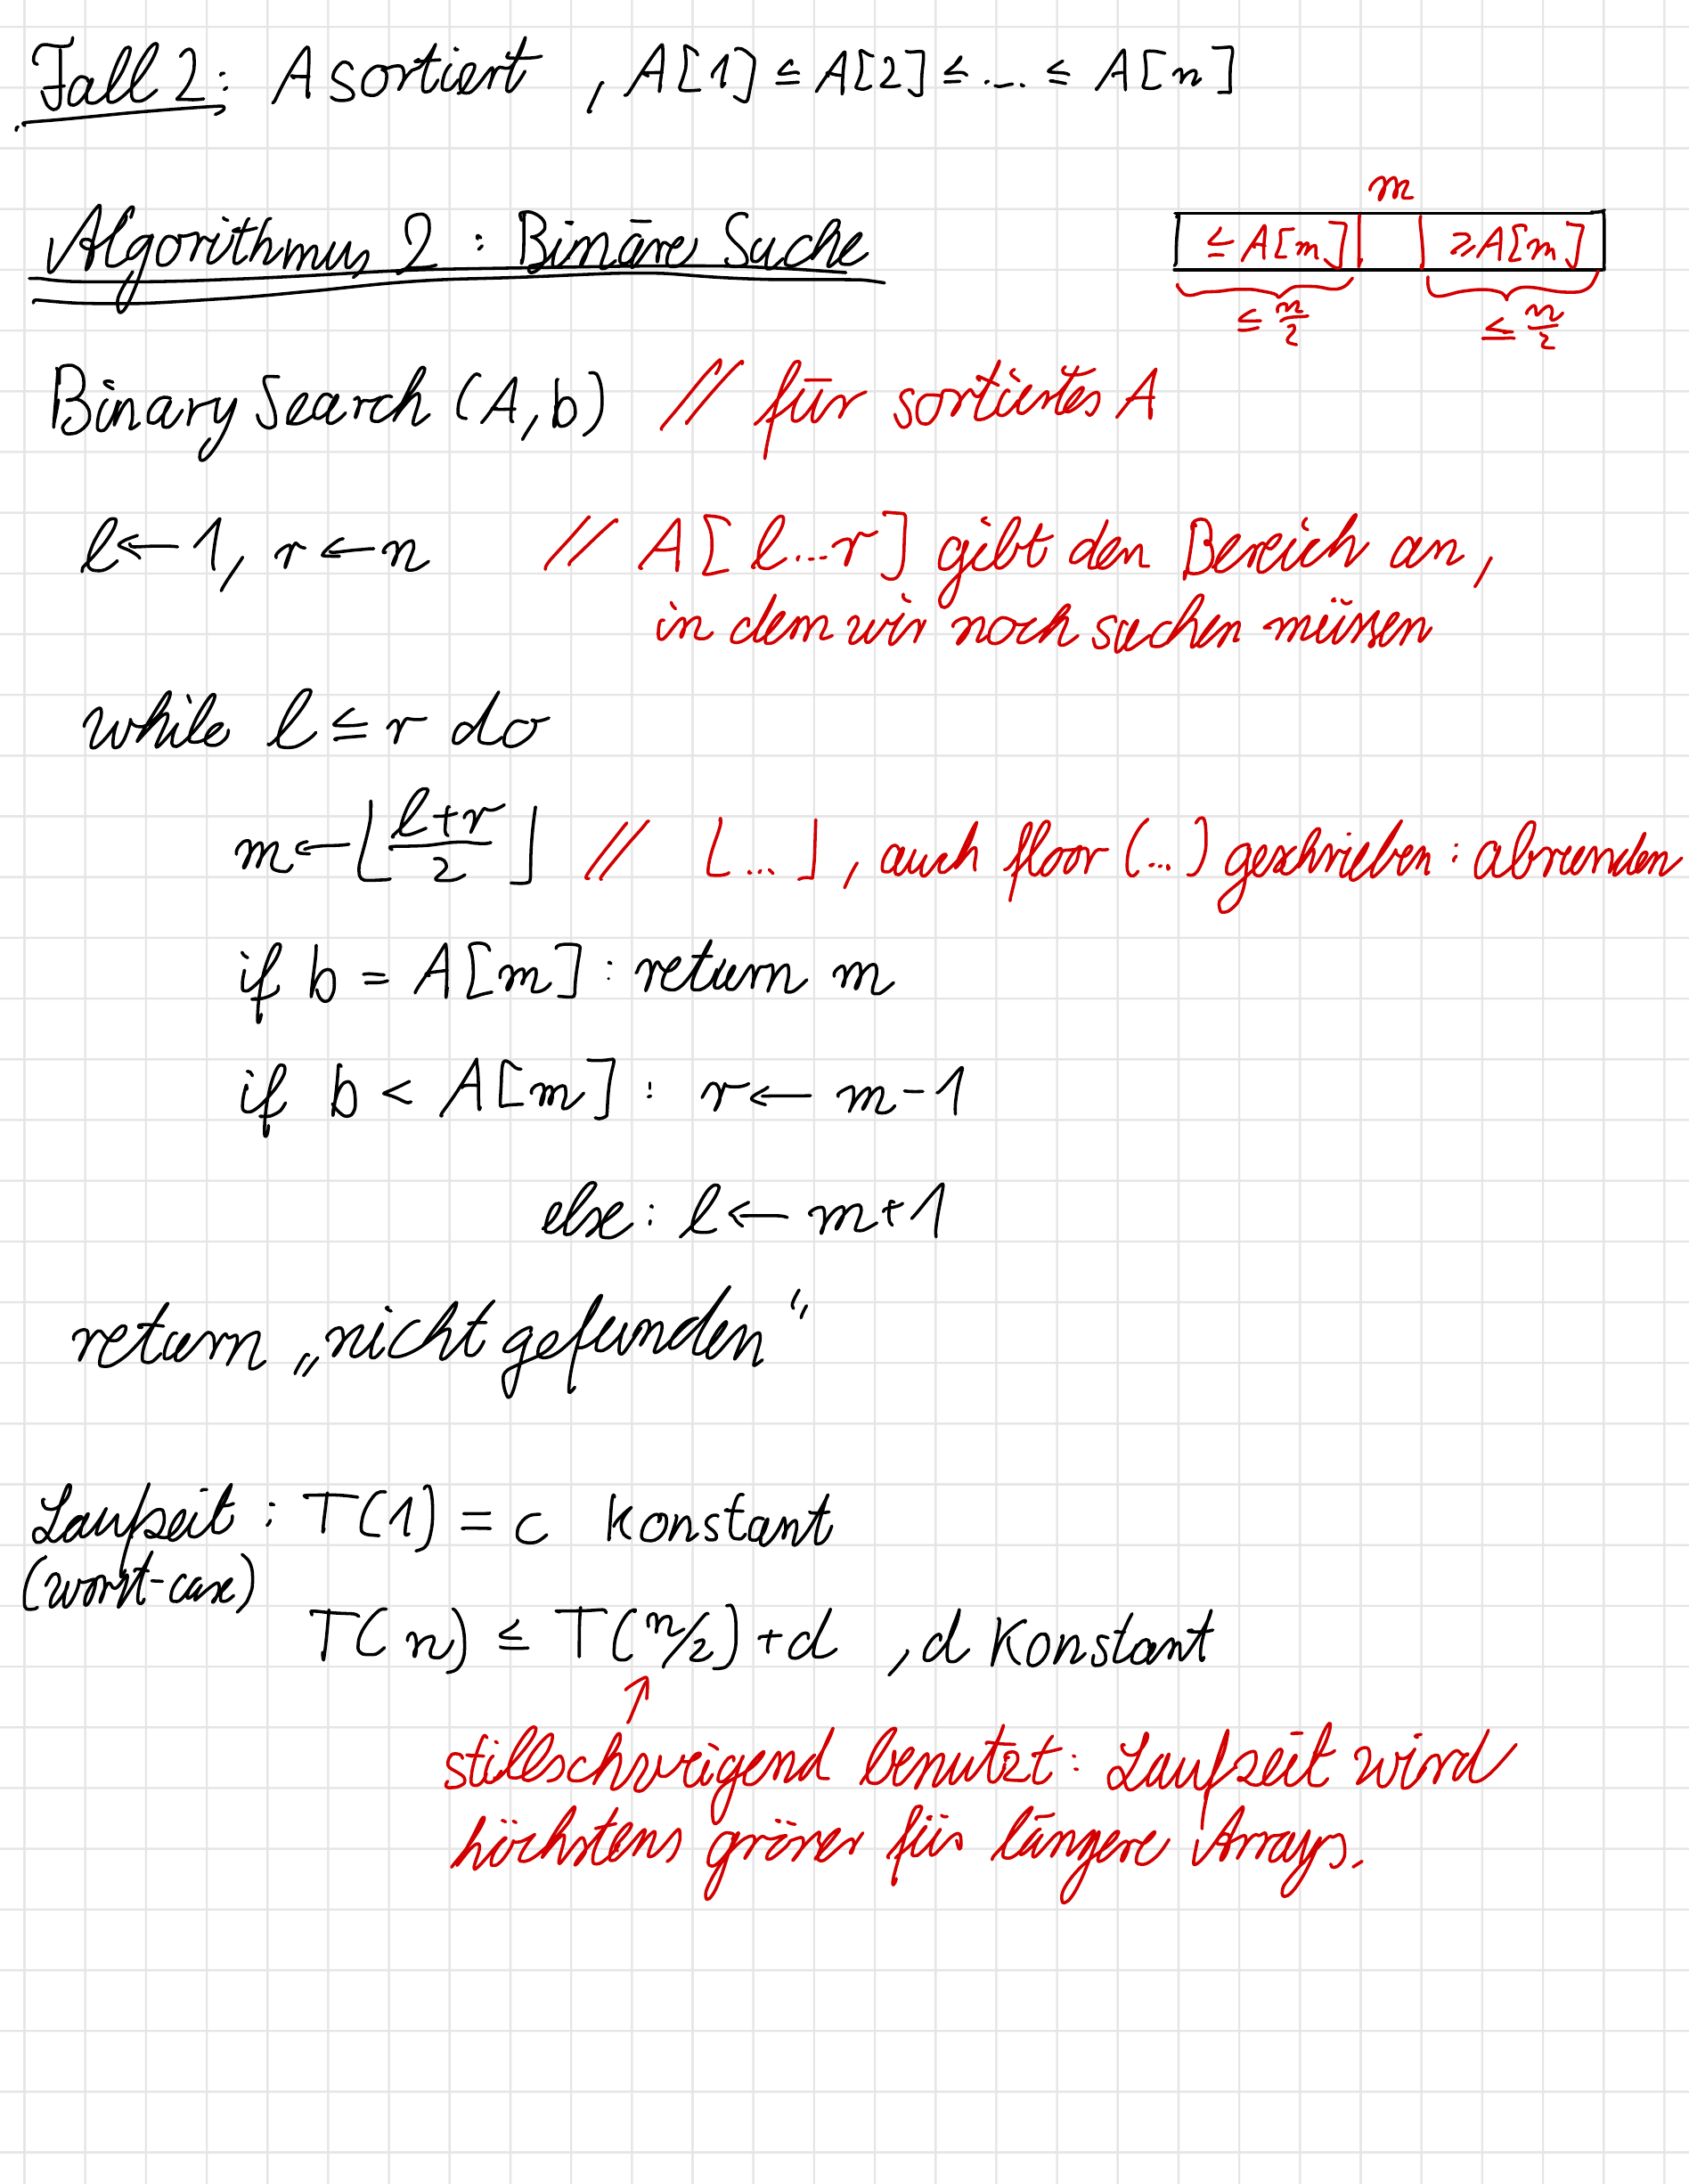 Fall 2: A sortiert, A[1] ≤ A[2] ≤ ... ≤ A[n]
m
Algorithmus 2: Binäre Suche
≤ A[m] ≥ A[m]
≤ n/2 ≤ n/2
Binary Search (A, b) // für sortiertes A
l ← 1, r ← n // A[l...r] gibt den Bereich an,
in dem wir noch suchen müssen
while l ≤ r do
m ← ⌊(l+r)/2⌋ // ⌊...⌋, auch floor (...) geschrieben: abrunden
if b = A[m]: return m
if b < A[m]: r ← m-1
else: l ← m+1
return „nicht gefunden“
Laufzeit: T(1) = c konstant
(worst-case)
T(n) ≤ T(n/2) + d, d konstant
↑
stillschweigend benutzt: Laufzeit wird
höchstens grösser für längere Arrays.